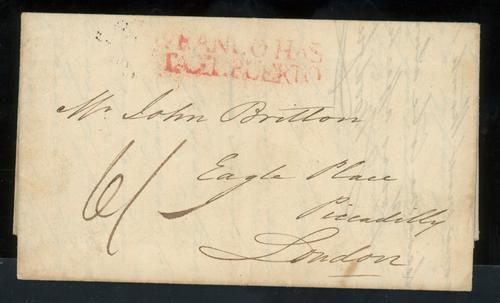 FRANCO HAS
TA EL PUERTO
Mr John Britton
6/
Eagle Place
Piccadilly
London